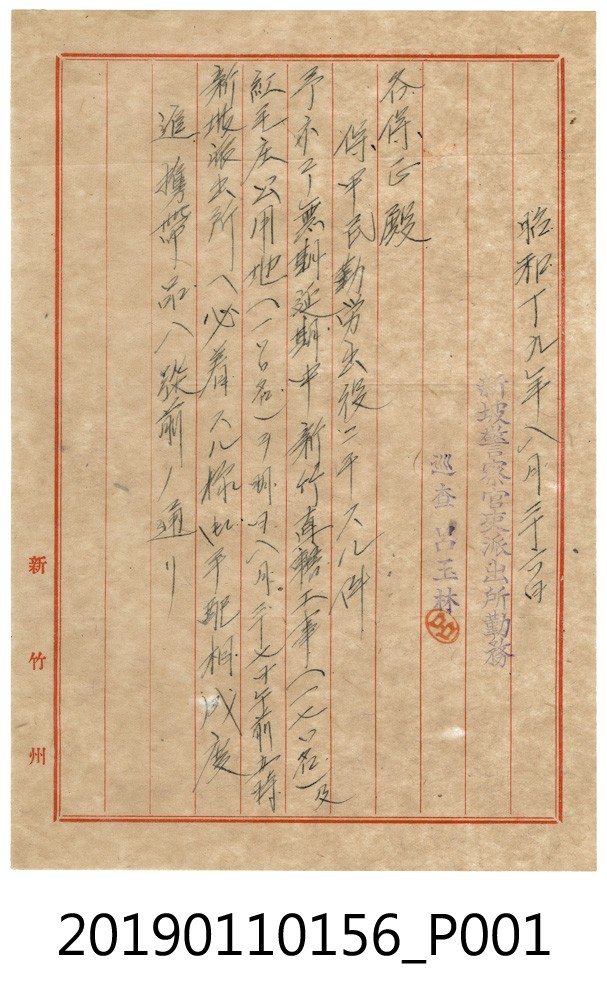 昭和十九年八月二十六日
新坡警察官吏派出所勤務
巡查 呂玉林
各保正殿
保甲民勤労出役ニ干スル件
予而ヨリ無期延期中新竹直轄工事(一七〇名)及
紅毛庄公用地(一〇〇名)ヲ明ヲ八月二十七日午前五時
新坡派出所ヘ必着スル様御手配相成度
追 携帯品ハ従前ノ通リ
新竹州
20190110156_P001